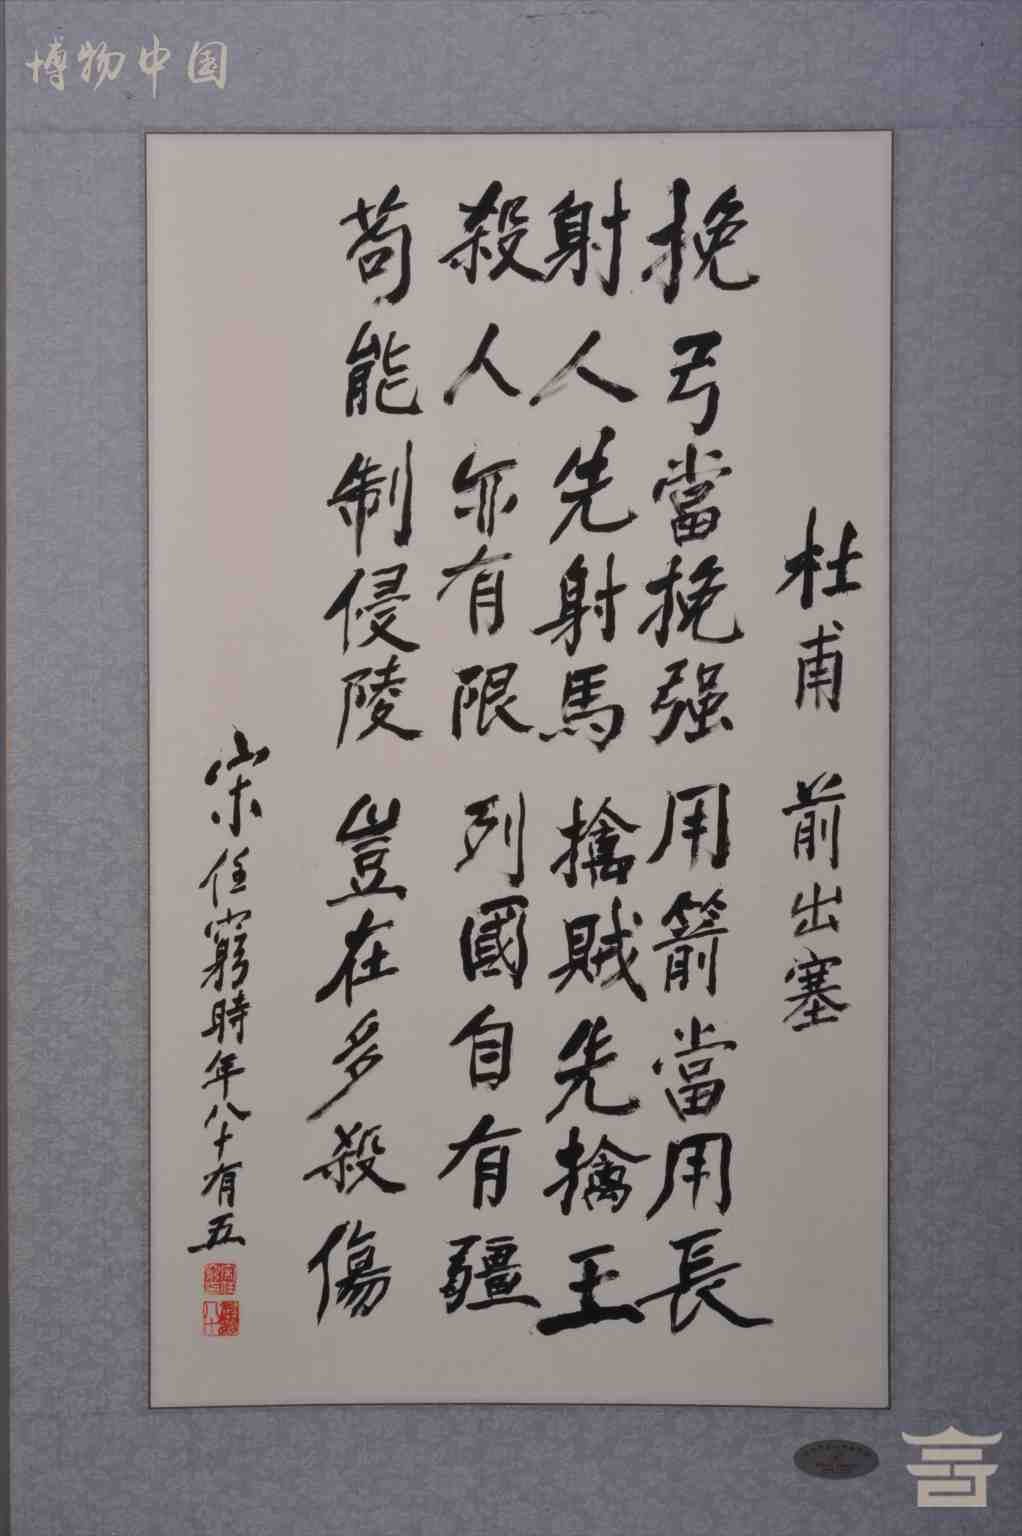 博物中国
杜甫 前出塞
挽弓當挽强 用箭當用長
射人先射馬 擒賊先擒王
殺人亦有限 列國自有疆
苟能制侵陵 豈在多殺傷
宋任窮時年八十有五